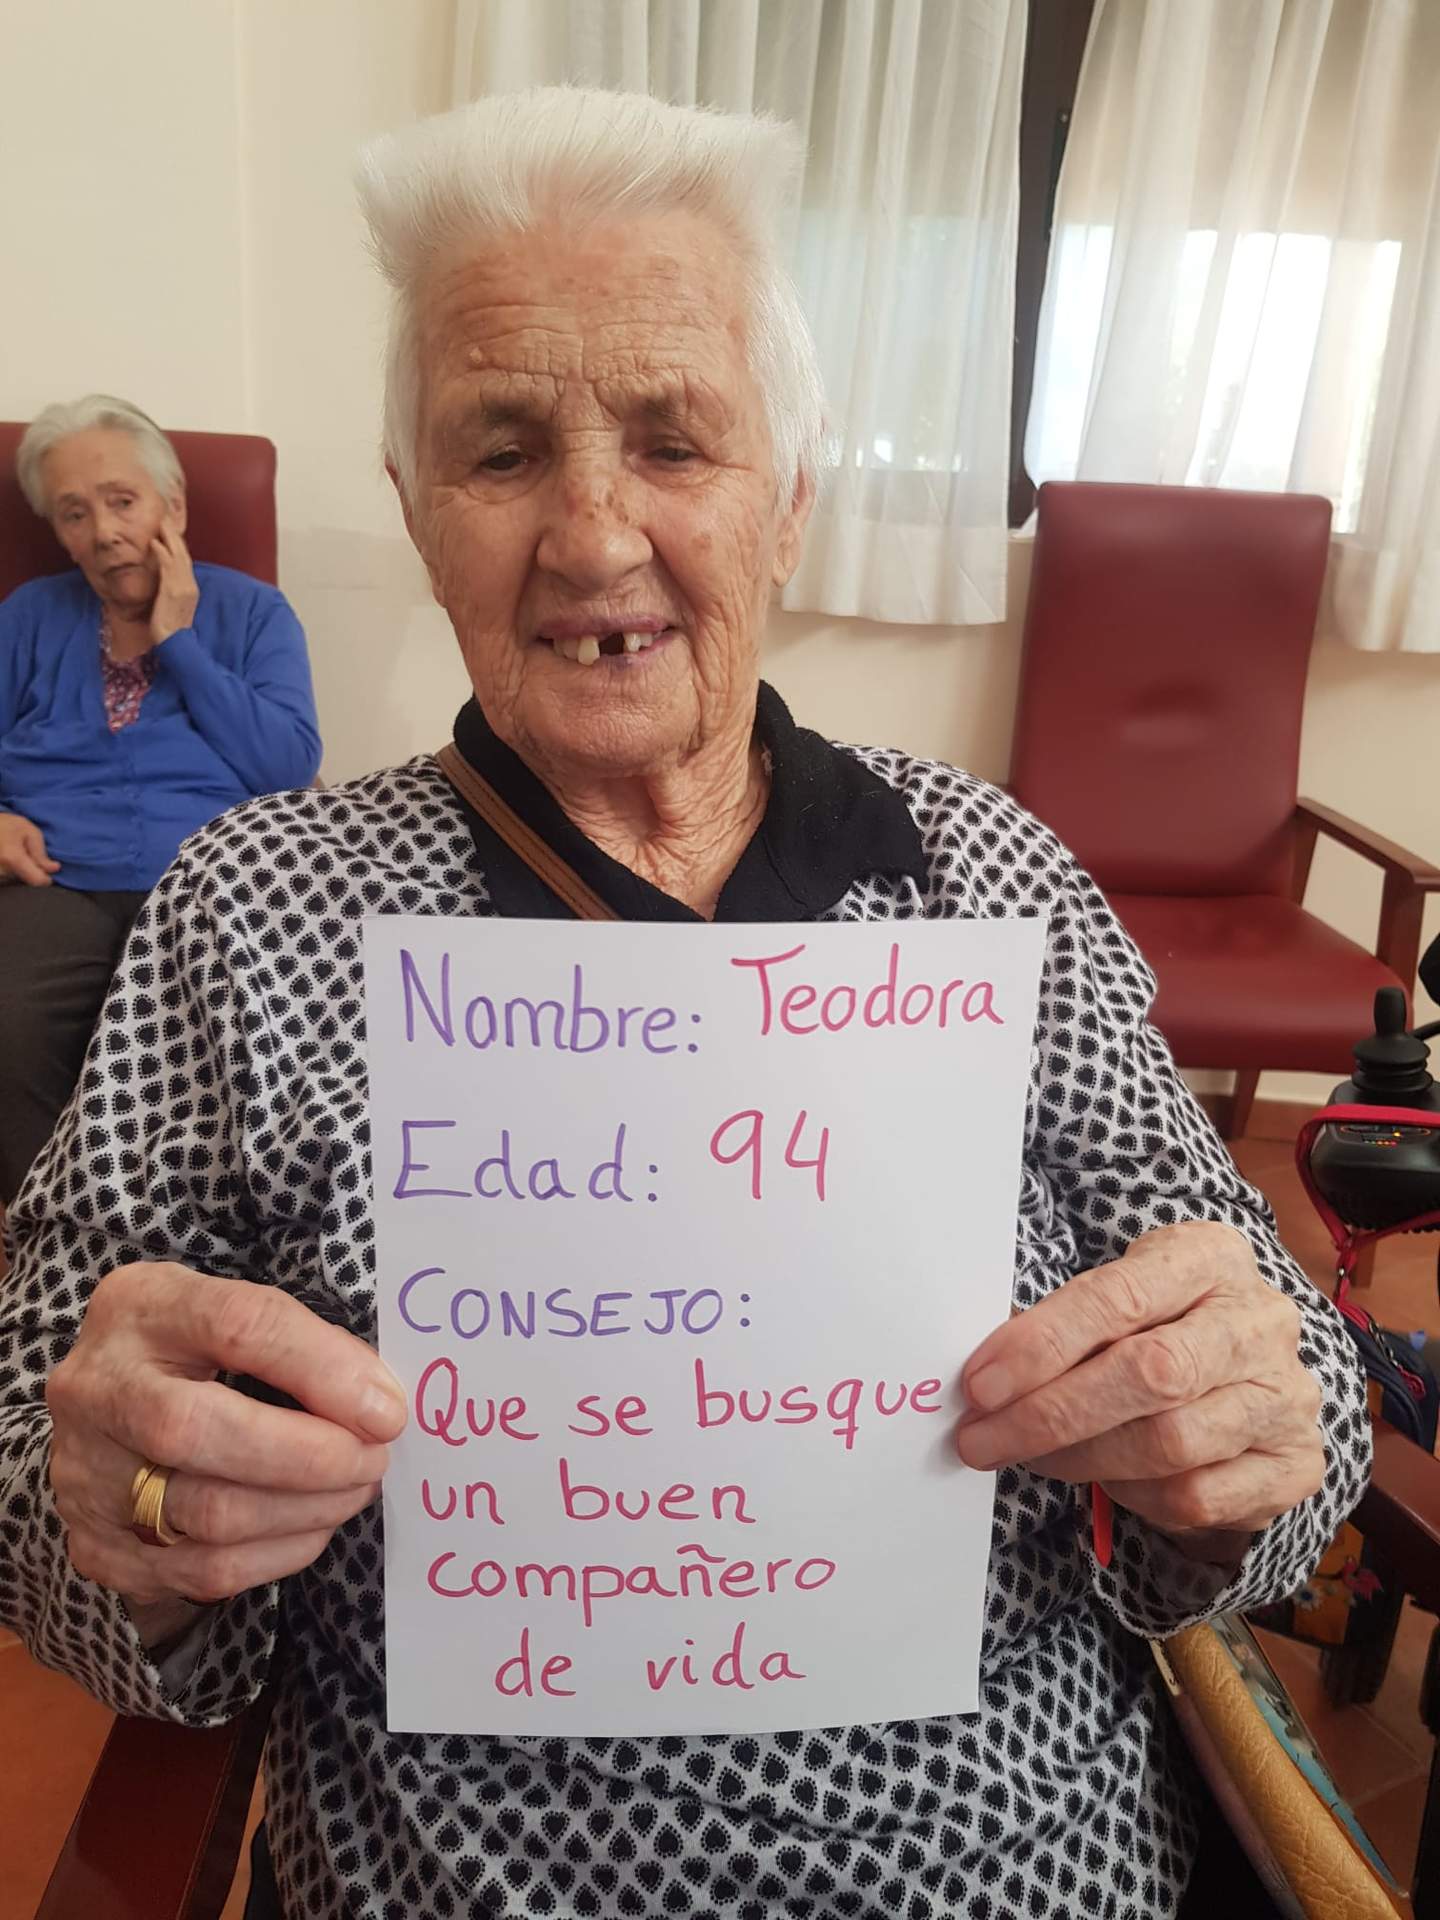 Nombre: Teodora
Edad: 94
CONSEJO:
Que se busque
un buen
compañero
de vida